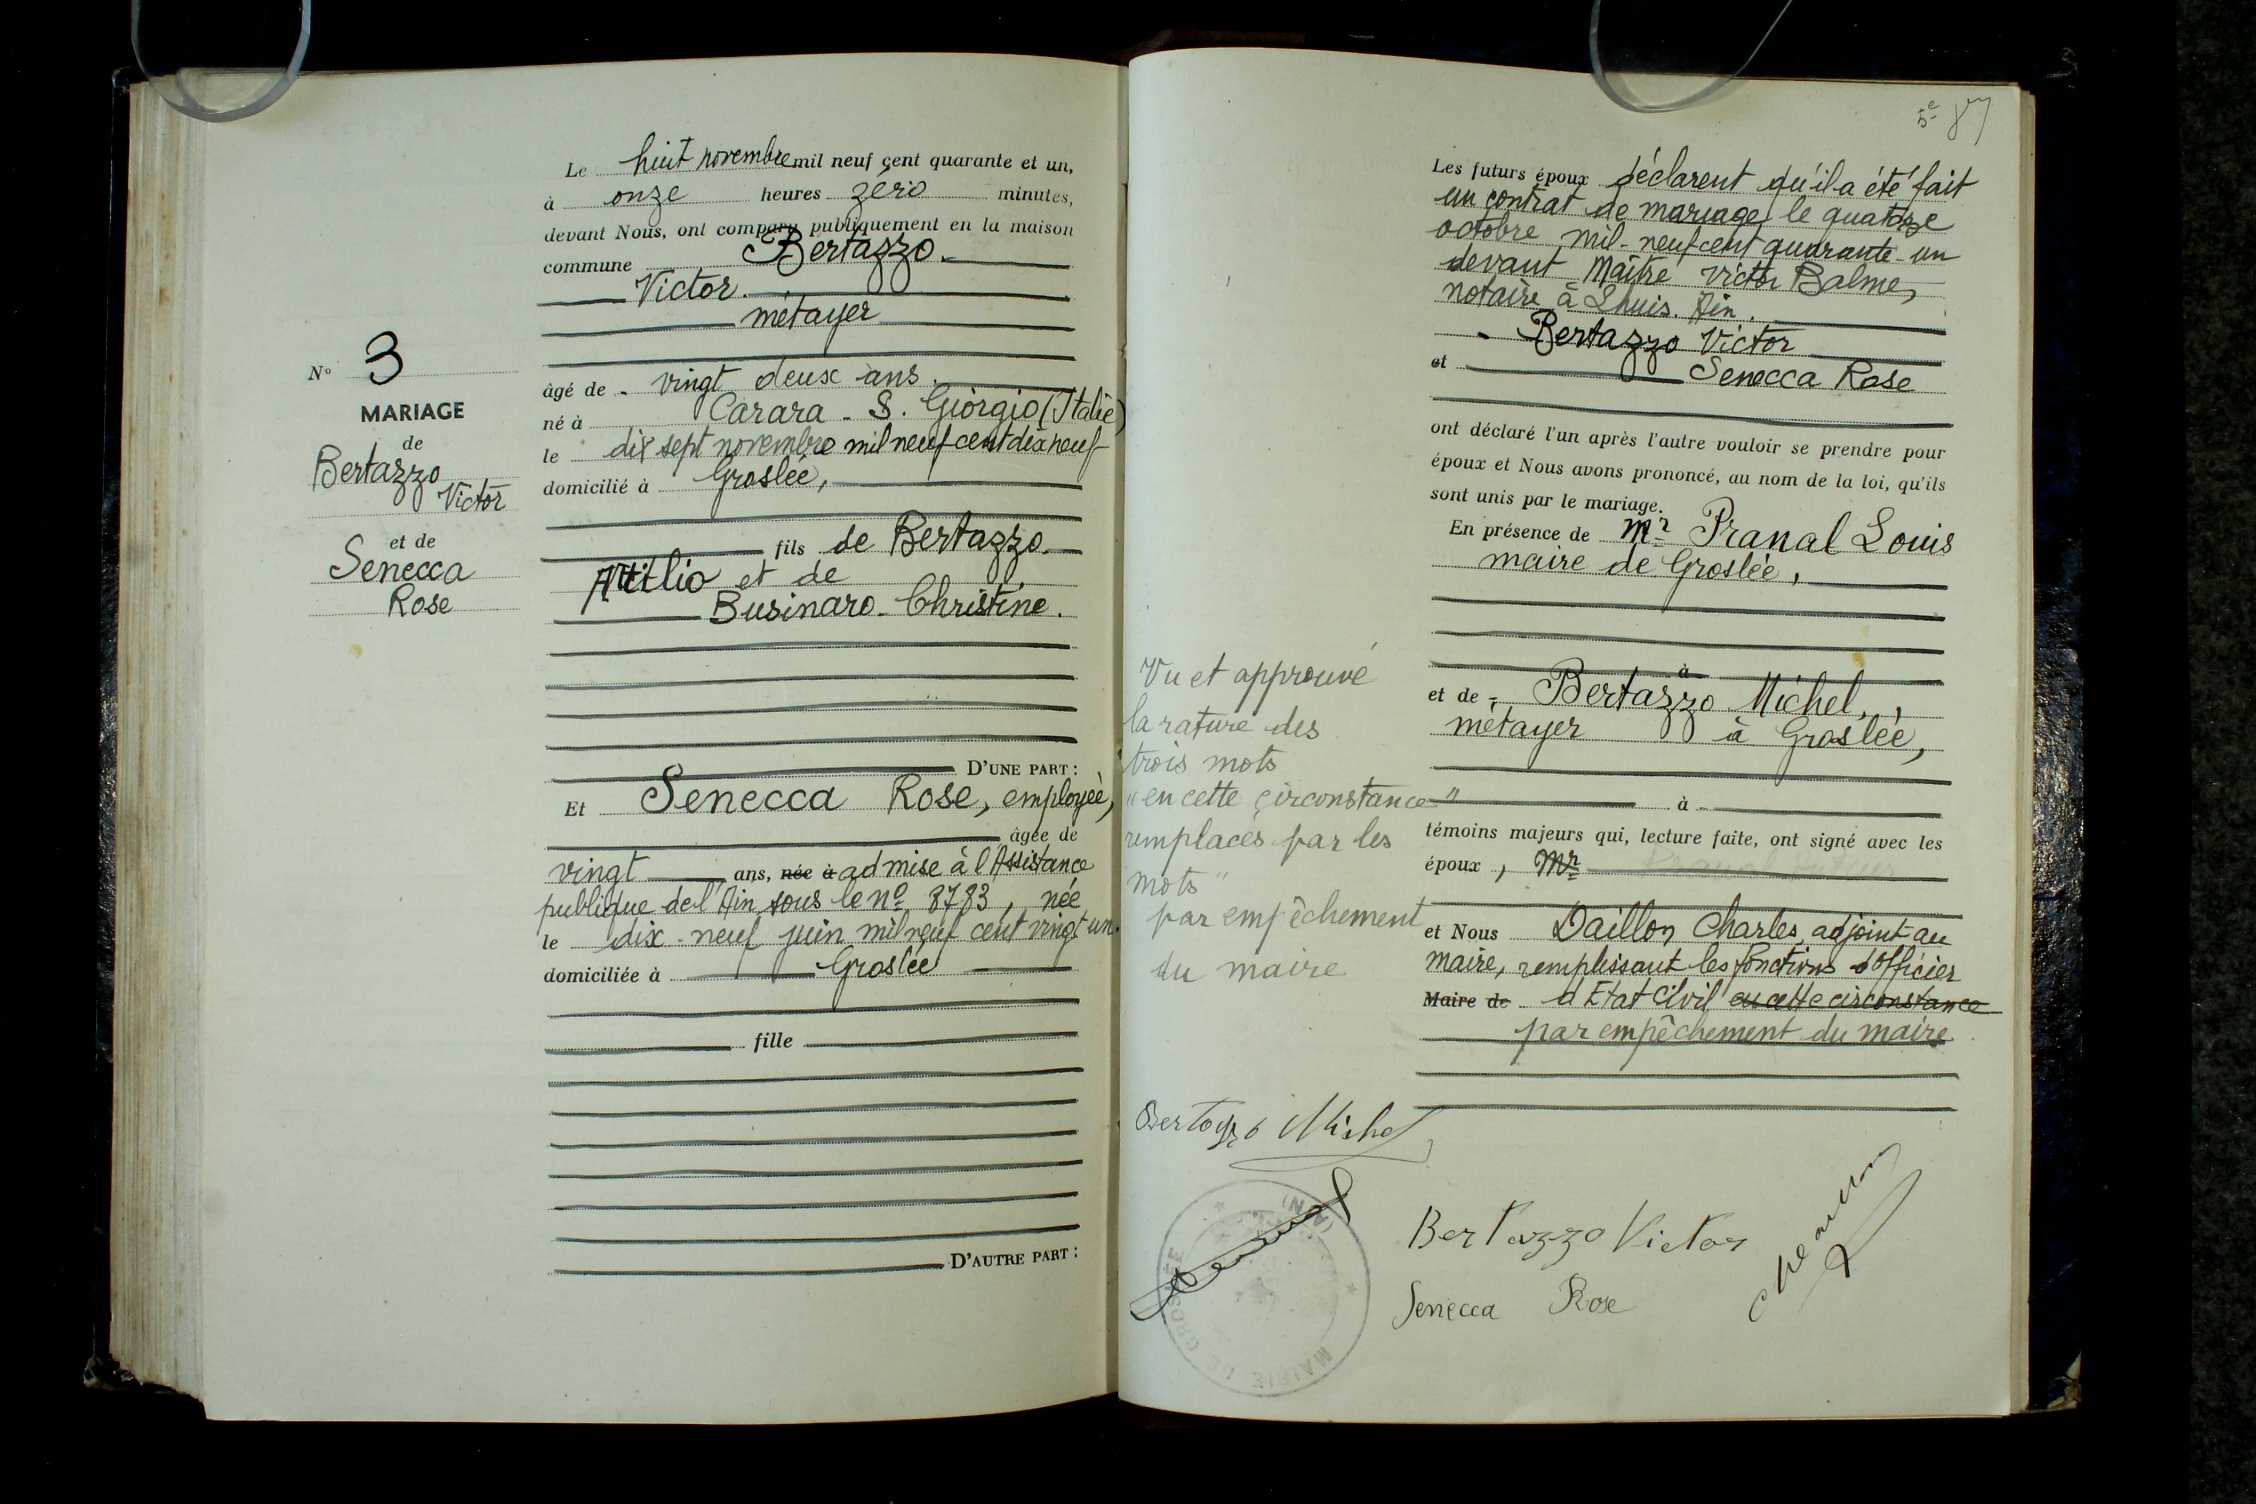 Le huit novembre mil neuf cent quarante et un,
à onze heures zéro minutes,
devant Nous, ont comparu publiquement en la maison
commune Bertazzo
Victor
métayer
âgé de vingt deux ans
né à Carara - S. Giorgio (Italie)
le dix sept novembre mil neuf cent dix neuf
domicilié à Groslée,
fils de Bertazzo
Attilio et de
Businaro Christine.
D'UNE PART :
Et Senecca Rose, employée,
âgée de
vingt ans, née à admise à l'Assistance
publique de l'Ain sous le nº 8783, née
le dix-neuf juin mil neuf cent vingt un.
domiciliée à Groslée
fille
D'AUTRE PART :
Nº 3
MARIAGE
de
Bertazzo
Victor
et de
Senecca
Rose
5e 87
Les futurs époux déclarent qu'il a été fait
un contrat de mariage le quatorze
octobre mil-neuf cent quarante-un
devant Maître Victor Balme,
notaire à Lhuis. Ain.
Bertazzo Victor
et Senecca Rose
ont déclaré l'un après l'autre vouloir se prendre pour
époux et Nous avons prononcé, au nom de la loi, qu'ils
sont unis par le mariage.
En présence de Mr Pranal Louis
maire de Groslée,
à
et de Bertazzo Michel,
métayer à Groslée,
à
témoins majeurs qui, lecture faite, ont signé avec les
époux, Mr
et Nous Daillon Charles, adjoint au
maire, remplissant les fonctions d'officier
Maire de d'Etat Civil en cette circonstance
par empêchement du maire
Vu et approuvé
la rature des
trois mots
"en cette circonstance"
remplacés par les
mots "
par empêchement
du maire
Bertazzo Michel
MAIRIE DE GROSLÉE (AIN)
Bertazzo Victor
Senecca Rose